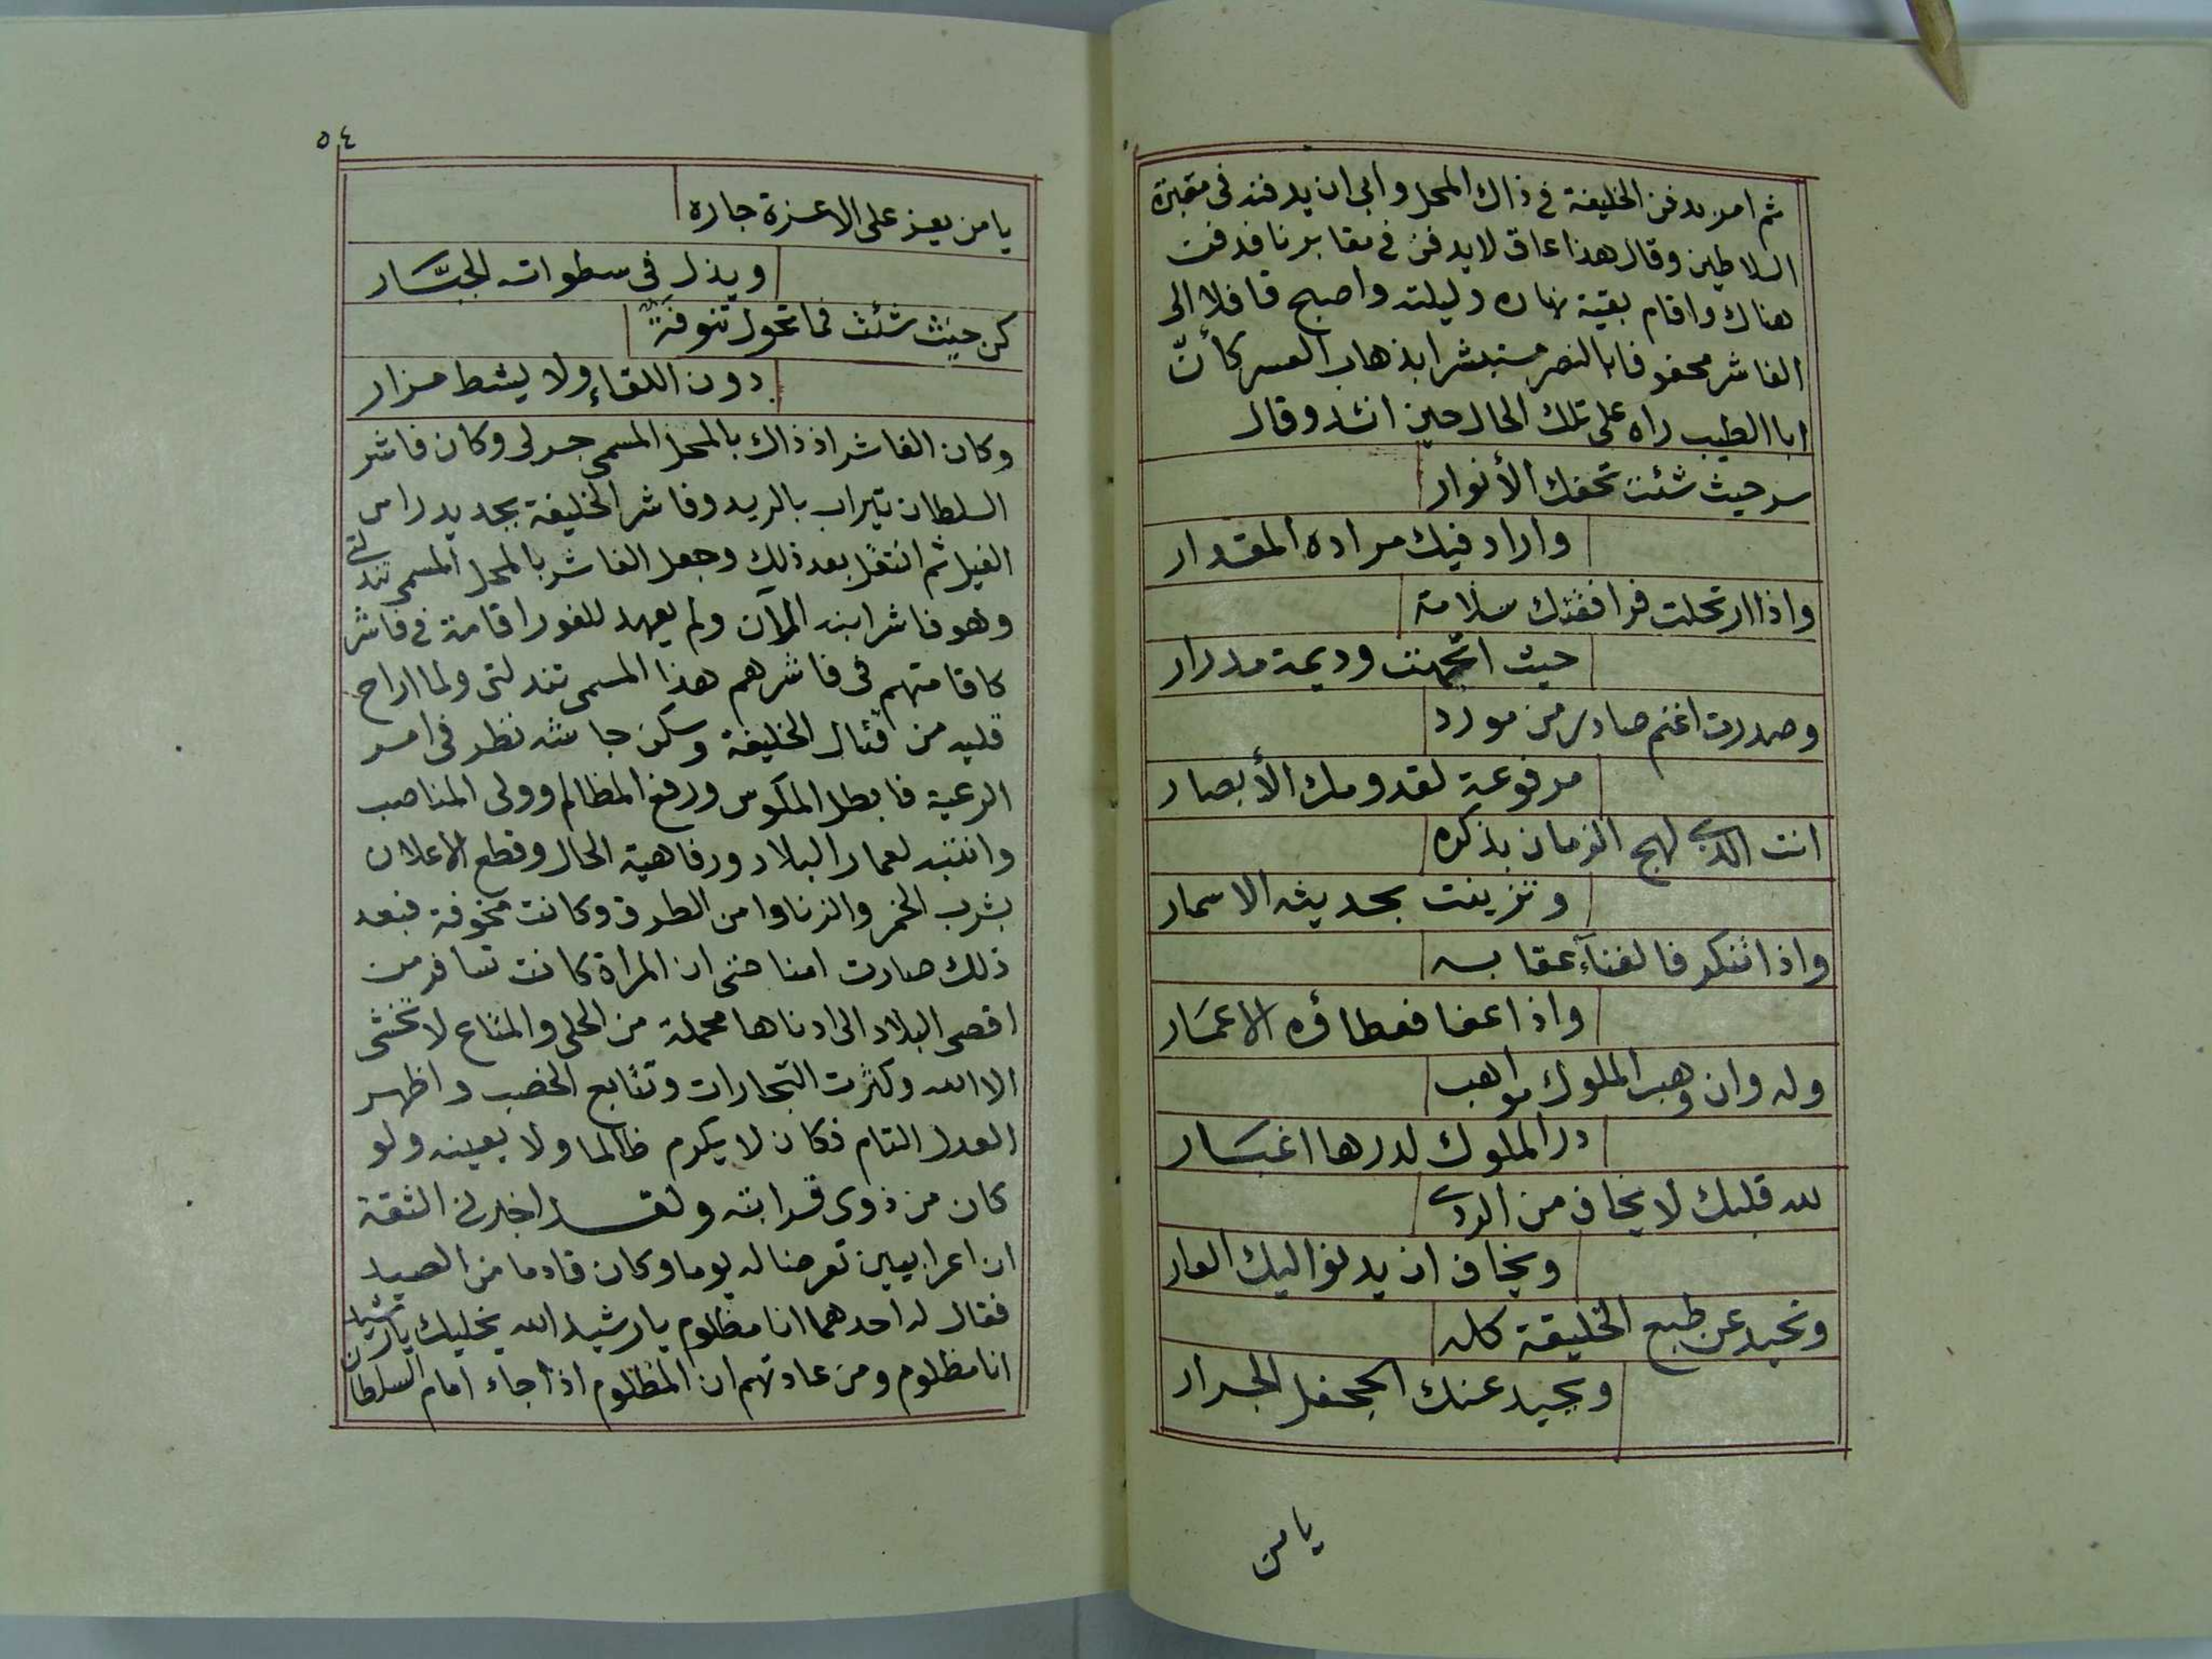 ثم امر بدفن الخليفة فى ذاك المحل وابى ان يدفنه فى مقبرة
السلاطين وقال هذا عاق لا يدفن فى مقابرنا فدفن
هناك واقام بقية نهاره وليلته واصبح قافلا الى
الفاشر محفوفا بالنصر مستبشرا بذهاب العسر كأنّ
ابا الطيب راه على تلك الحال حين انشد وقال
سر حيث شئت تحفك الأنوار
واراد فيك مراده المقدار
واذا ارتحلت فرافقتك سلامة
حيث اتجهت وديمة مدرار
وصدرت اغنم صادر من مورد
مرفوعة لقدومك الأبصار
انت الذى لهج الزمان بذكره
وتزينت بحديثه الاسمار
واذا تنكر فالفنآء عقابه
واذا عفا فعطاؤه الاعمَار
وله وان وهب الملوك مواهب
در الملوك لدرها اغبَار
لله قلبك لا يخاف من الردى
ويخاف ان يدنو اليك العار
وتحيد عن طبع الخليقة كله
ويحيد عنك الجحفل الجرار
يا من
٥٤
يا من يعز على الاعزة جاره
ويذل فى سطواته الجبَّار
كن حيث شئت فما تحول تنوفةٌ
دون اللقاءِ ولا يشط مزار
وكان الفاشر اذ ذاك بالمحل المسمى جرلى وكان فاشر
السلطان تيراب بالريد وفاشر الخليفة بجديد راس
الفيل ثم انتقل بعد ذلك وجعل الفاشر بالمحل المسمى تندلتى
وهو فاشر ابنه الآن ولم يعهد للفور اقامة فى فاشر
كاقامتهم فى فاشرهم هذا المسمى تندلتى ولما اراح
قلبه من قتال الخليفة وسكن جاشه نظر فى امر
الرعية فابطل المكوس ورفع المظالم وولى المناصب
وانتبه لعمار البلاد ورفاهية الحال وقطع الاعلان
بشرب الخمر والزنا وامن الطرق وكانت مخوفة فبعد
ذلك صارت امنا حتى ان المراة كانت تسافر من
اقصى البلاد الى ادناها محملة من الحلى والمتاع لا تخشى
الا الله وكثرت التجارات وتتابع الخصب واظهر
العدل التام فكان لا يكرم ظالما ولا يعينه ولو
كان من ذوى قرابته ولقد اخبرنى الثقة
ان اعرابيين تعرضا له يوما وكان قادما من الصيد
فقال له احدهما انا مظلوم يا رشيد الله يخليك يا رشيد
انا مظلوم ومن عادتهم ان المظلوم اذا جاء امام السلطان